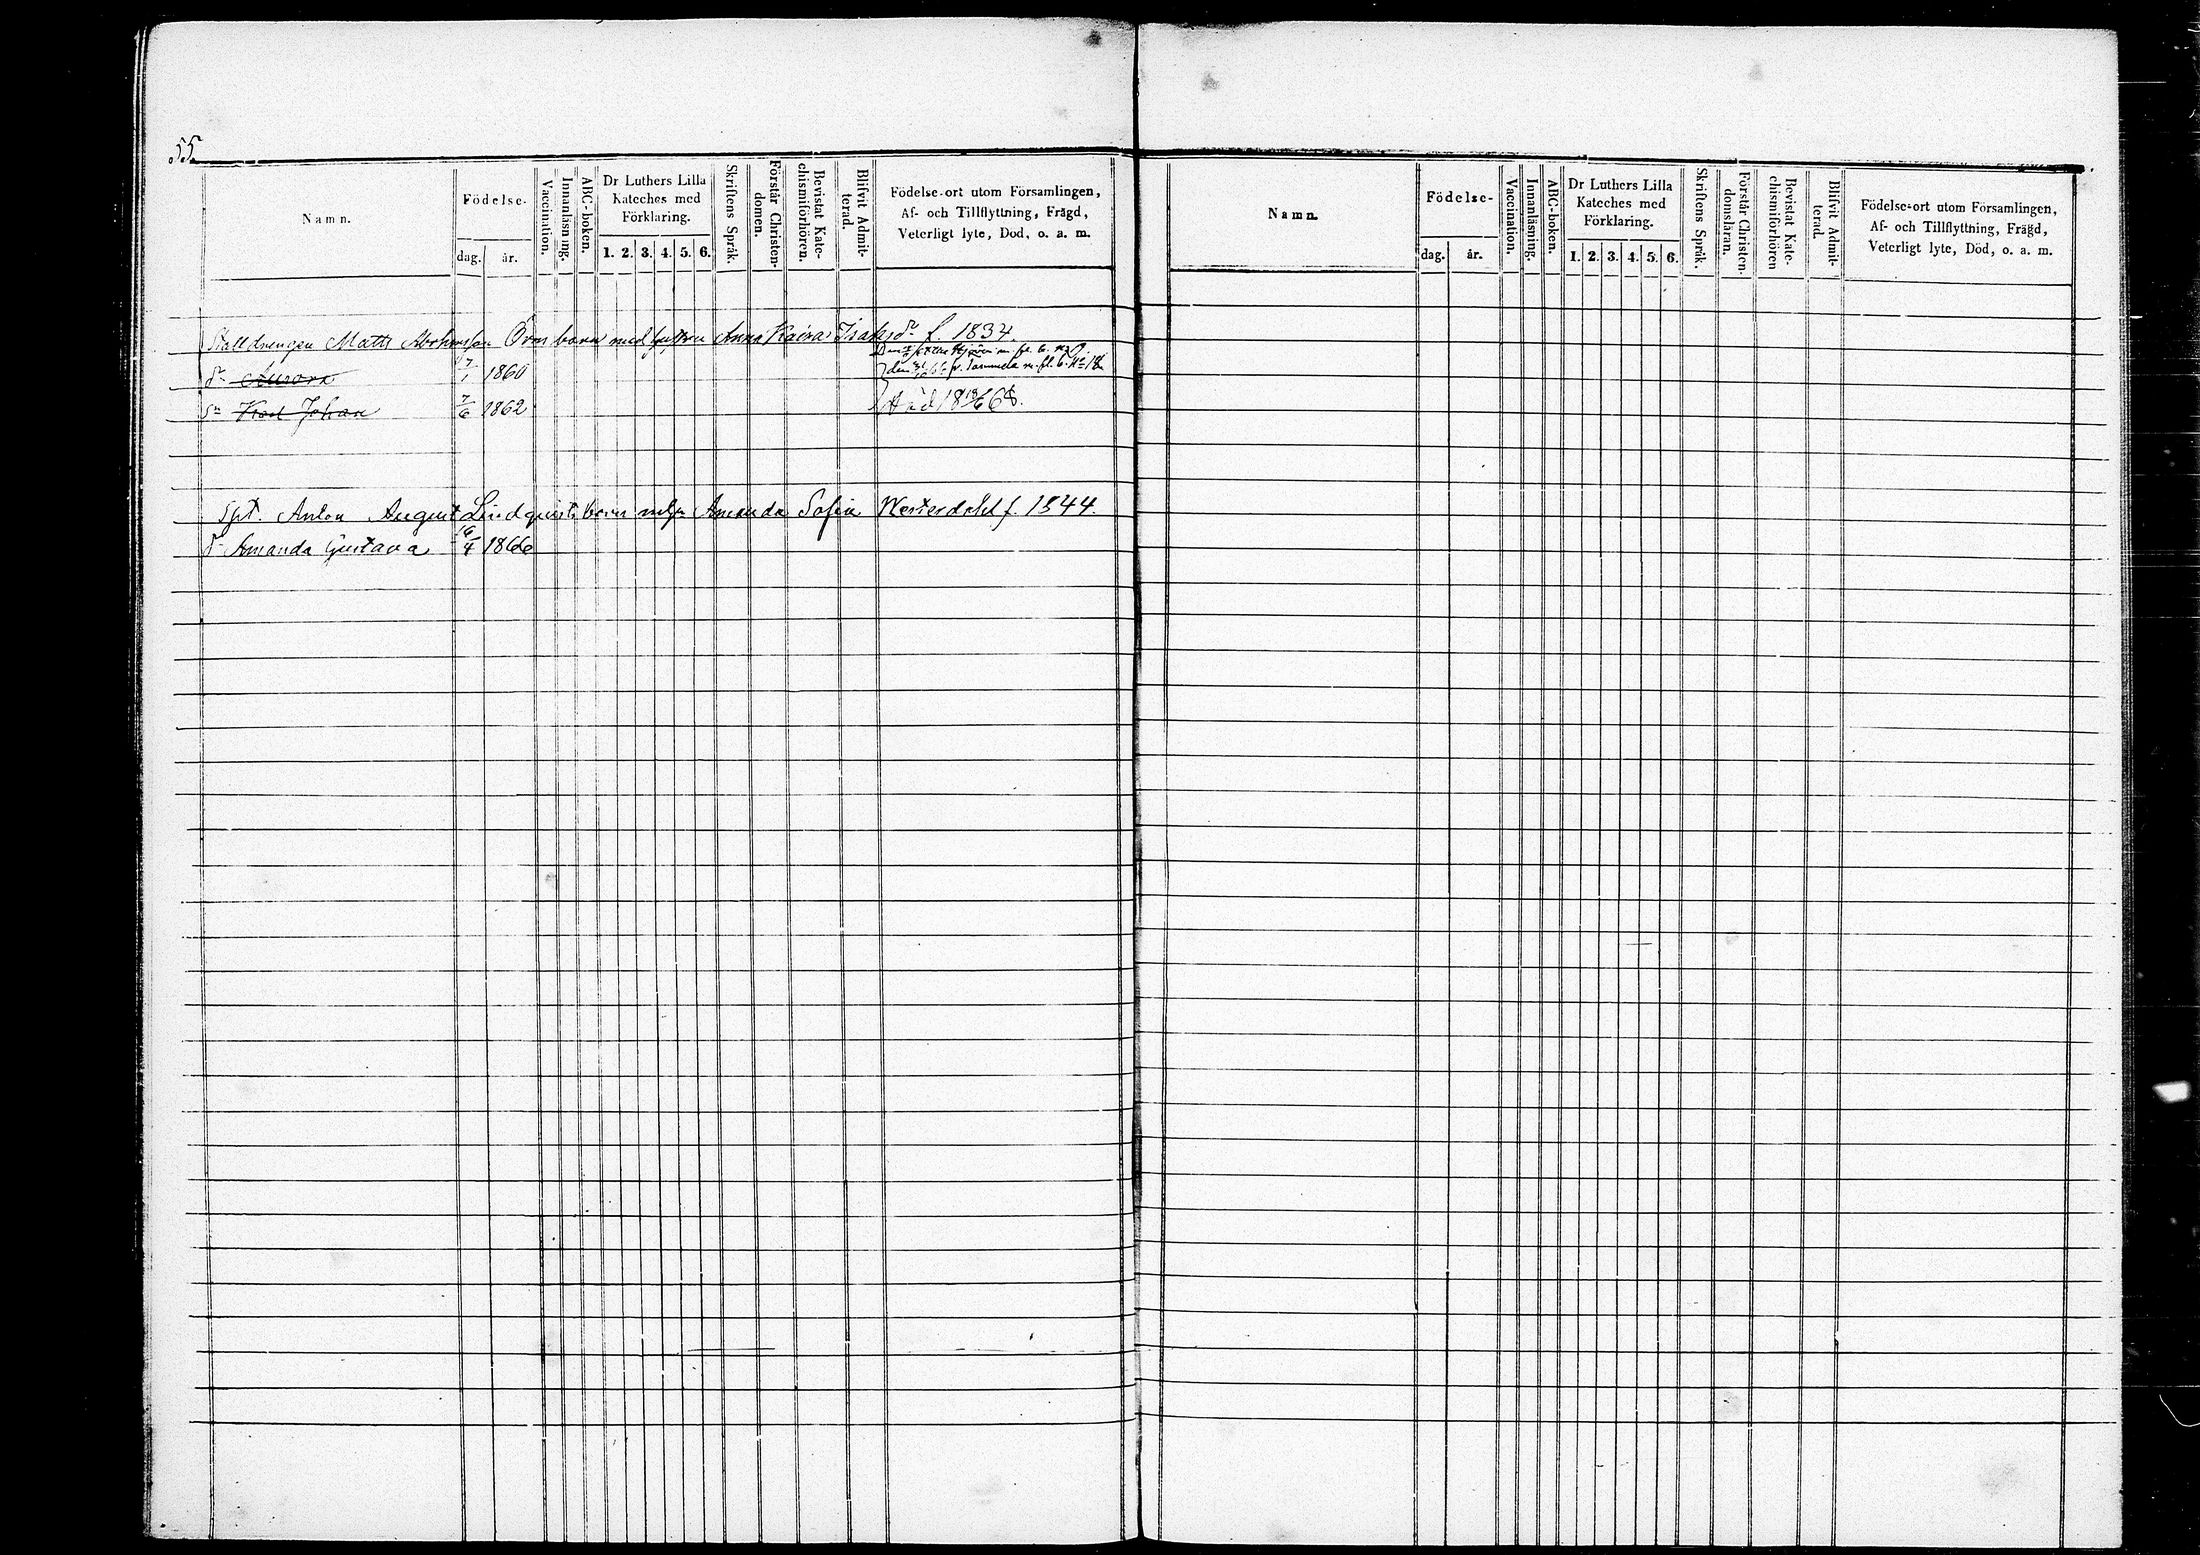 55.
Namn.
Födelse-
dag.
år.
Vaccination.
Innanläsning.
ABC-boken.
Dr Luthers Lilla
Kateches med
Förklaring.
1. 2. 3. 4. 5. 6.
Skriftens Språk.
Förstår Christen-
domen.
Bevistat Kate-
chismiförhören.
Blifvit Admit-
terad.
Födelse-ort utom Församlingen,
Af- och Tillflyttning, Frägd,
Veterligt lyte, Död, o. a. m.
Stalldrengen Matts Abrhmsson Örns barn med hustru Anna Kaisa Isaksdr f. 1834.
dr Aurora 7/1 1860
den p. Tammela m. fl. b.
sn Karl Johan 7/6 1862
Död
Spt. Anton August Lindqvists barn m hu Amanda Sofia Westerdahl f. 1844.
dr Amanda Gustava 16/4 1866
Namn.
Födelse-
dag.
år.
Vaccination.
Innanläsning.
ABC-boken.
Dr Luthers Lilla
Kateches med
Förklaring.
1. 2. 3. 4. 5. 6.
Skriftens Språk.
Förstår Christen-
domsläran.
Bevistat Kate-
chismiförhören
Blifvit Admit-
terad.
Födelse-ort utom Församlingen,
Af- och Tillflyttning, Frägd,
Veterligt lyte, Död, o. a. m.